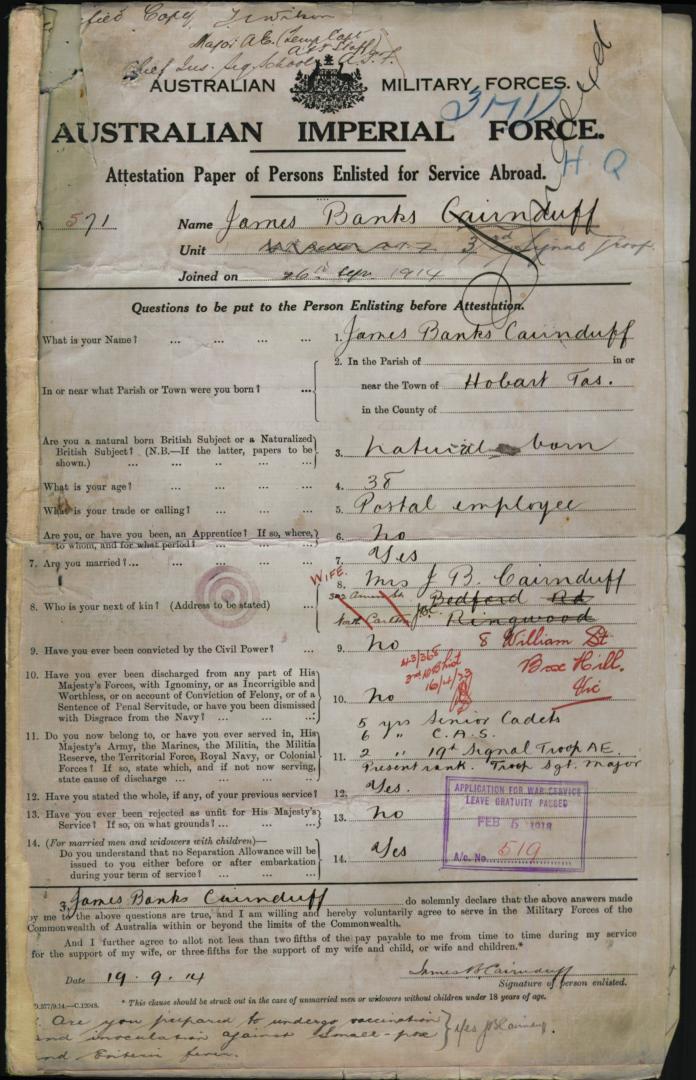 Copy
Major A.E. (Temp Capt
A & I Staff
Chief Ins. Sig School, A.I.F.
AUSTRALIAN MILITARY FORCES.
3MD
AUSTRALIAN IMPERIAL FORCE.
H Q
Attestation Paper of Persons Enlisted for Service Abroad.
571 Name James Banks Cairnduff
Unit 3rd Signal Troop
Joined on 26th Sep. 1914
Questions to be put to the Person Enlisting before Attestation.
What is your Name? ... ... ... ... 1. James Banks Cairnduff
2. In the Parish of in or
In or near what Parish or Town were you born? ... near the Town of Hobart Tas.
in the County of
Are you a natural born British Subject or a Naturalized
British Subject? (N.B.—If the latter, papers to be
shown.) ... ... ... ... 3. natural born
What is your age? ... ... ... ... 4. 38
What is your trade or calling? ... ... ... 5. Postal employee
Are you, or have you been, an Apprentice? If so, where,
to whom, and for what period? ... ... ... 6. No
7. Are you married?... ... ... ... ... 7. Yes
WIFE. 8. Mrs J. B. Cairnduff
8. Who is your next of kin? (Address to be stated) ... Bedford Rd
North Carlton Ringwood
9. Have you ever been convicted by the Civil Power? ... 9. No 8 William St
Box Hill.
Vic
16/4/23
10. Have you ever been discharged from any part of His
Majesty's Forces, with Ignominy, or as Incorrigible and
Worthless, or on account of Conviction of Felony, or of a
Sentence of Penal Servitude, or have you been dismissed
with Disgrace from the Navy? ... ... ... 10. No
11. Do you now belong to, or have you ever served in, His
Majesty's Army, the Marines, the Militia, the Militia
Reserve, the Territorial Force, Royal Navy, or Colonial
Forces? If so, state which, and if not now serving,
state cause of discharge ... ... ... 11.
5 yrs Senior Cadets
6 " C.A.S.
2 " 19th Signal Troop A.E.
Present rank. Troop Sgt. Major
12. Have you stated the whole, if any, of your previous service? 12. Yes.
13. Have you ever been rejected as unfit for His Majesty's
Service? If so, on what grounds? ... ... ... 13. No
14. (For married men and widowers with children)—
Do you understand that no Separation Allowance will be
issued to you either before or after embarkation
during your term of service? ... ... ... 14. Yes
APPLICATION FOR WAR SERVICE
LEAVE GRATUITY PASSED
FEB 5 1918
A/c. No. 519
James Banks Cairnduff do solemnly declare that the above answers made
by me to the above questions are true, and I am willing and hereby voluntarily agree to serve in the Military Forces of the
Commonwealth of Australia within or beyond the limits of the Commonwealth.
And I further agree to allot not less than two fifths of the pay payable to me from time to time during my service
for the support of my wife, or three-fifths for the support of my wife and child, or wife and children.*
Date 19.9.14 James B Cairnduff
Signature of person enlisted.
D.277/9.14.—C.12048. * This clause should be struck out in the case of unmarried men or widowers without children under 18 years of age.
Are you prepared to undergo vaccination
and inoculation against Small-pox
and Enteric fever. Yes